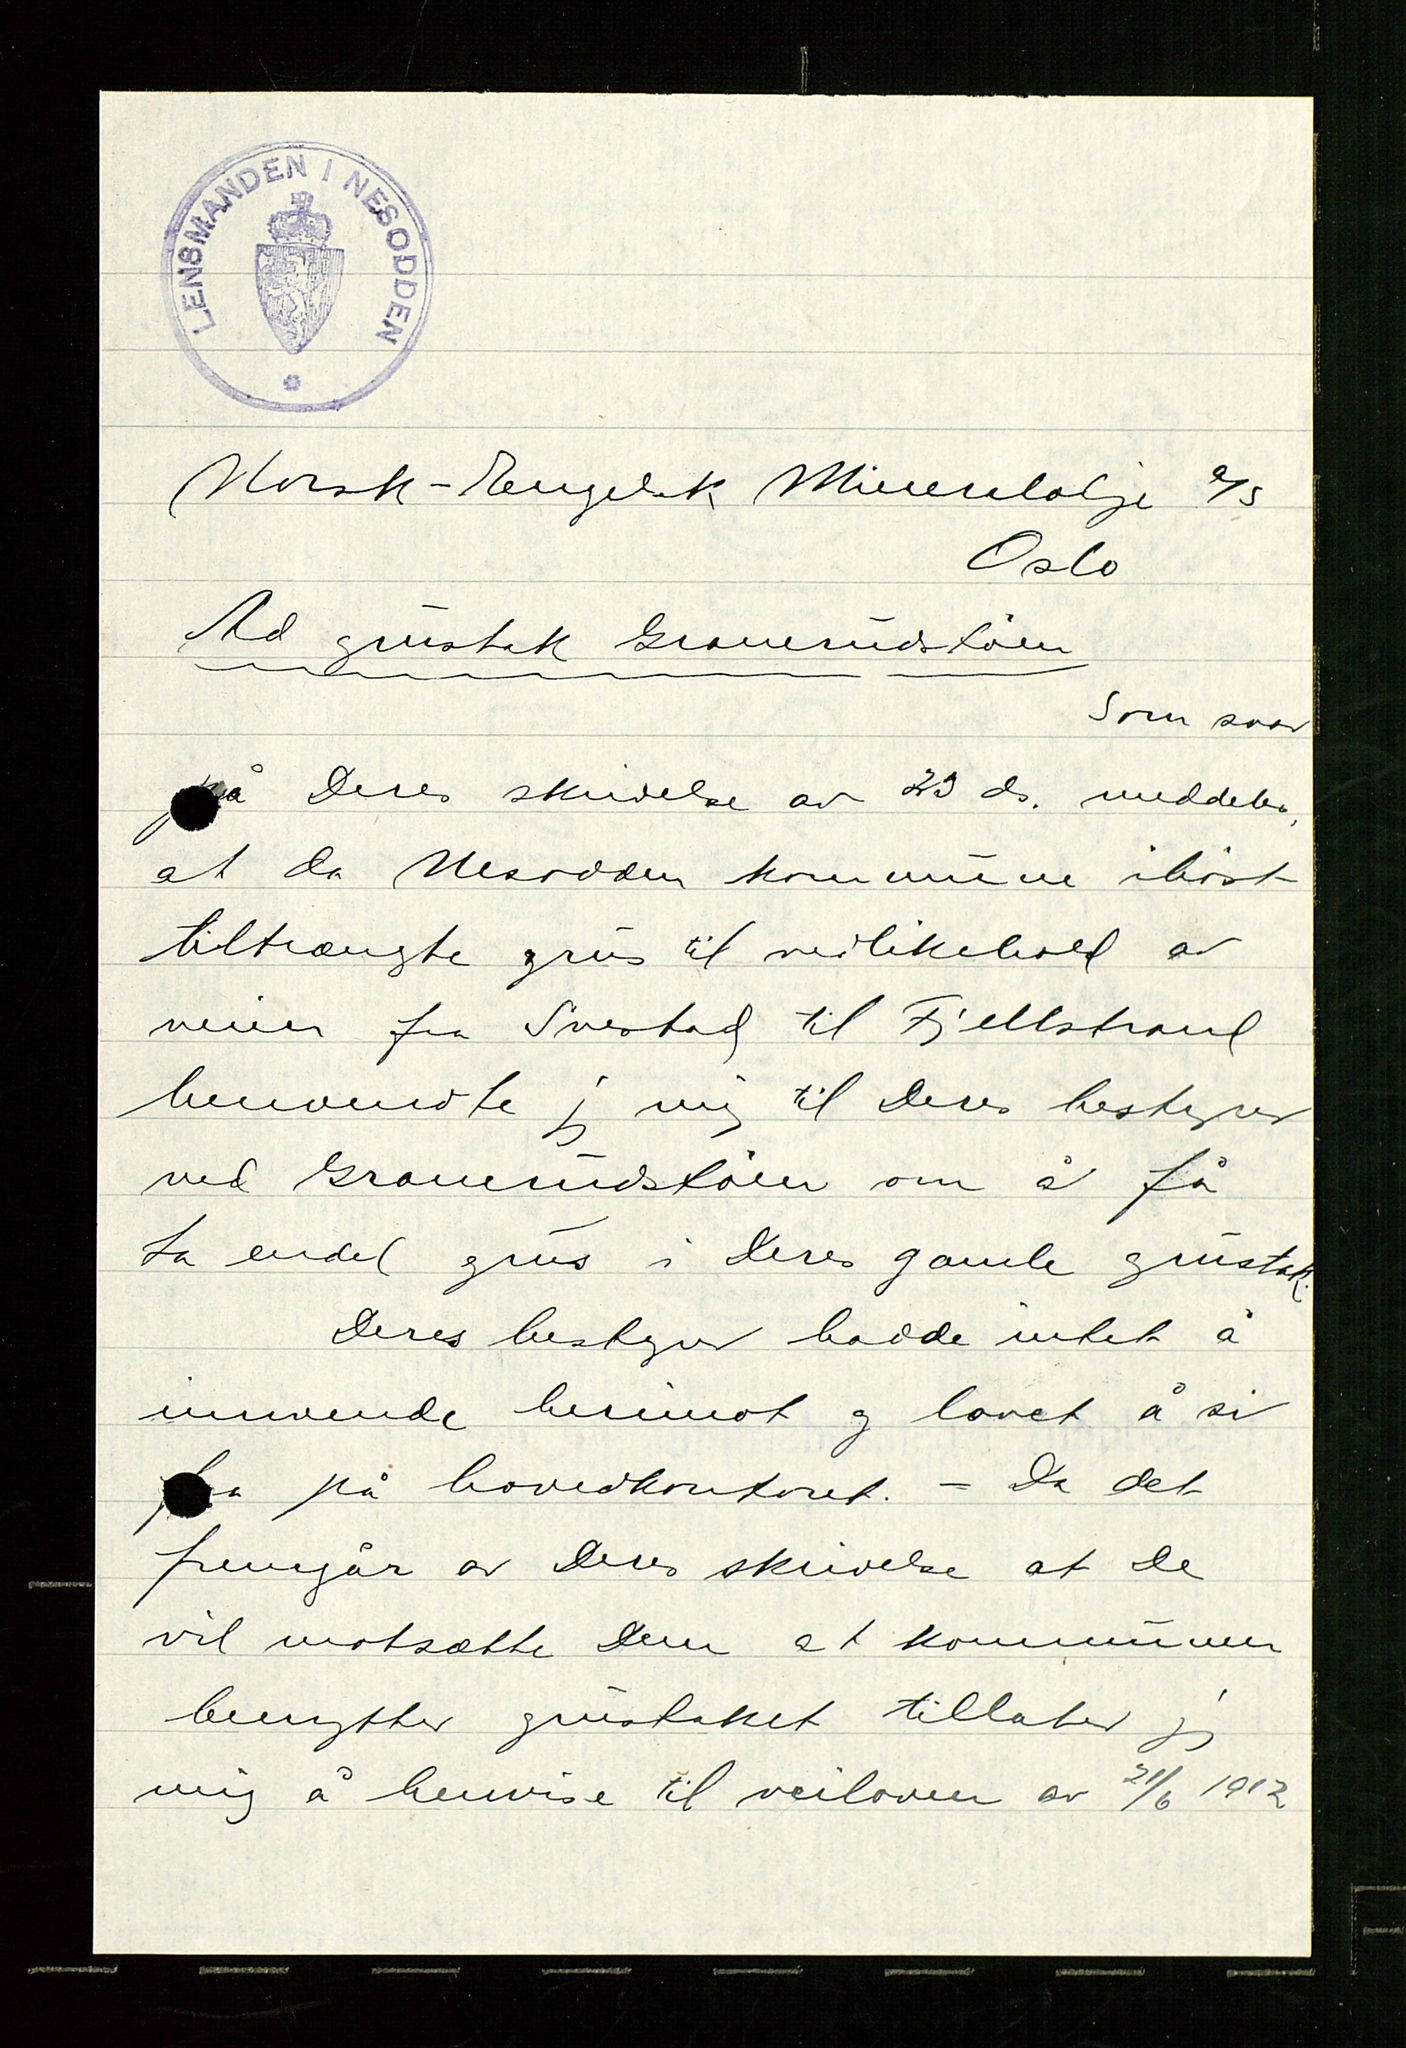 LENSMANDEN I NESODDEN
Norsk-Engelsk Mineralolje a/s
Oslo
Ad grustak Granerudstöen
Som svar
på Deres skrivelse av 23 ds. meddeles,
at da Nesodden kommune ihöst
tiltrængte grus til vedlikehold av
veien fra Svestad til Fjellstrand
henvendte jeg mig til Deres bestyrer
ved Granerudstöen om å få
ta endel grus i Deres gamle grustak.
Deres bestyrer hadde intet å
innvende herimot og lovet å si
fra på hovedkontoret. - Da det
fremgår av Deres skrivelse at De
vil motsætte Dem at kommunen
benytter grustaket tillater jeg
mig å henvise til veiloven av 21/6 1912